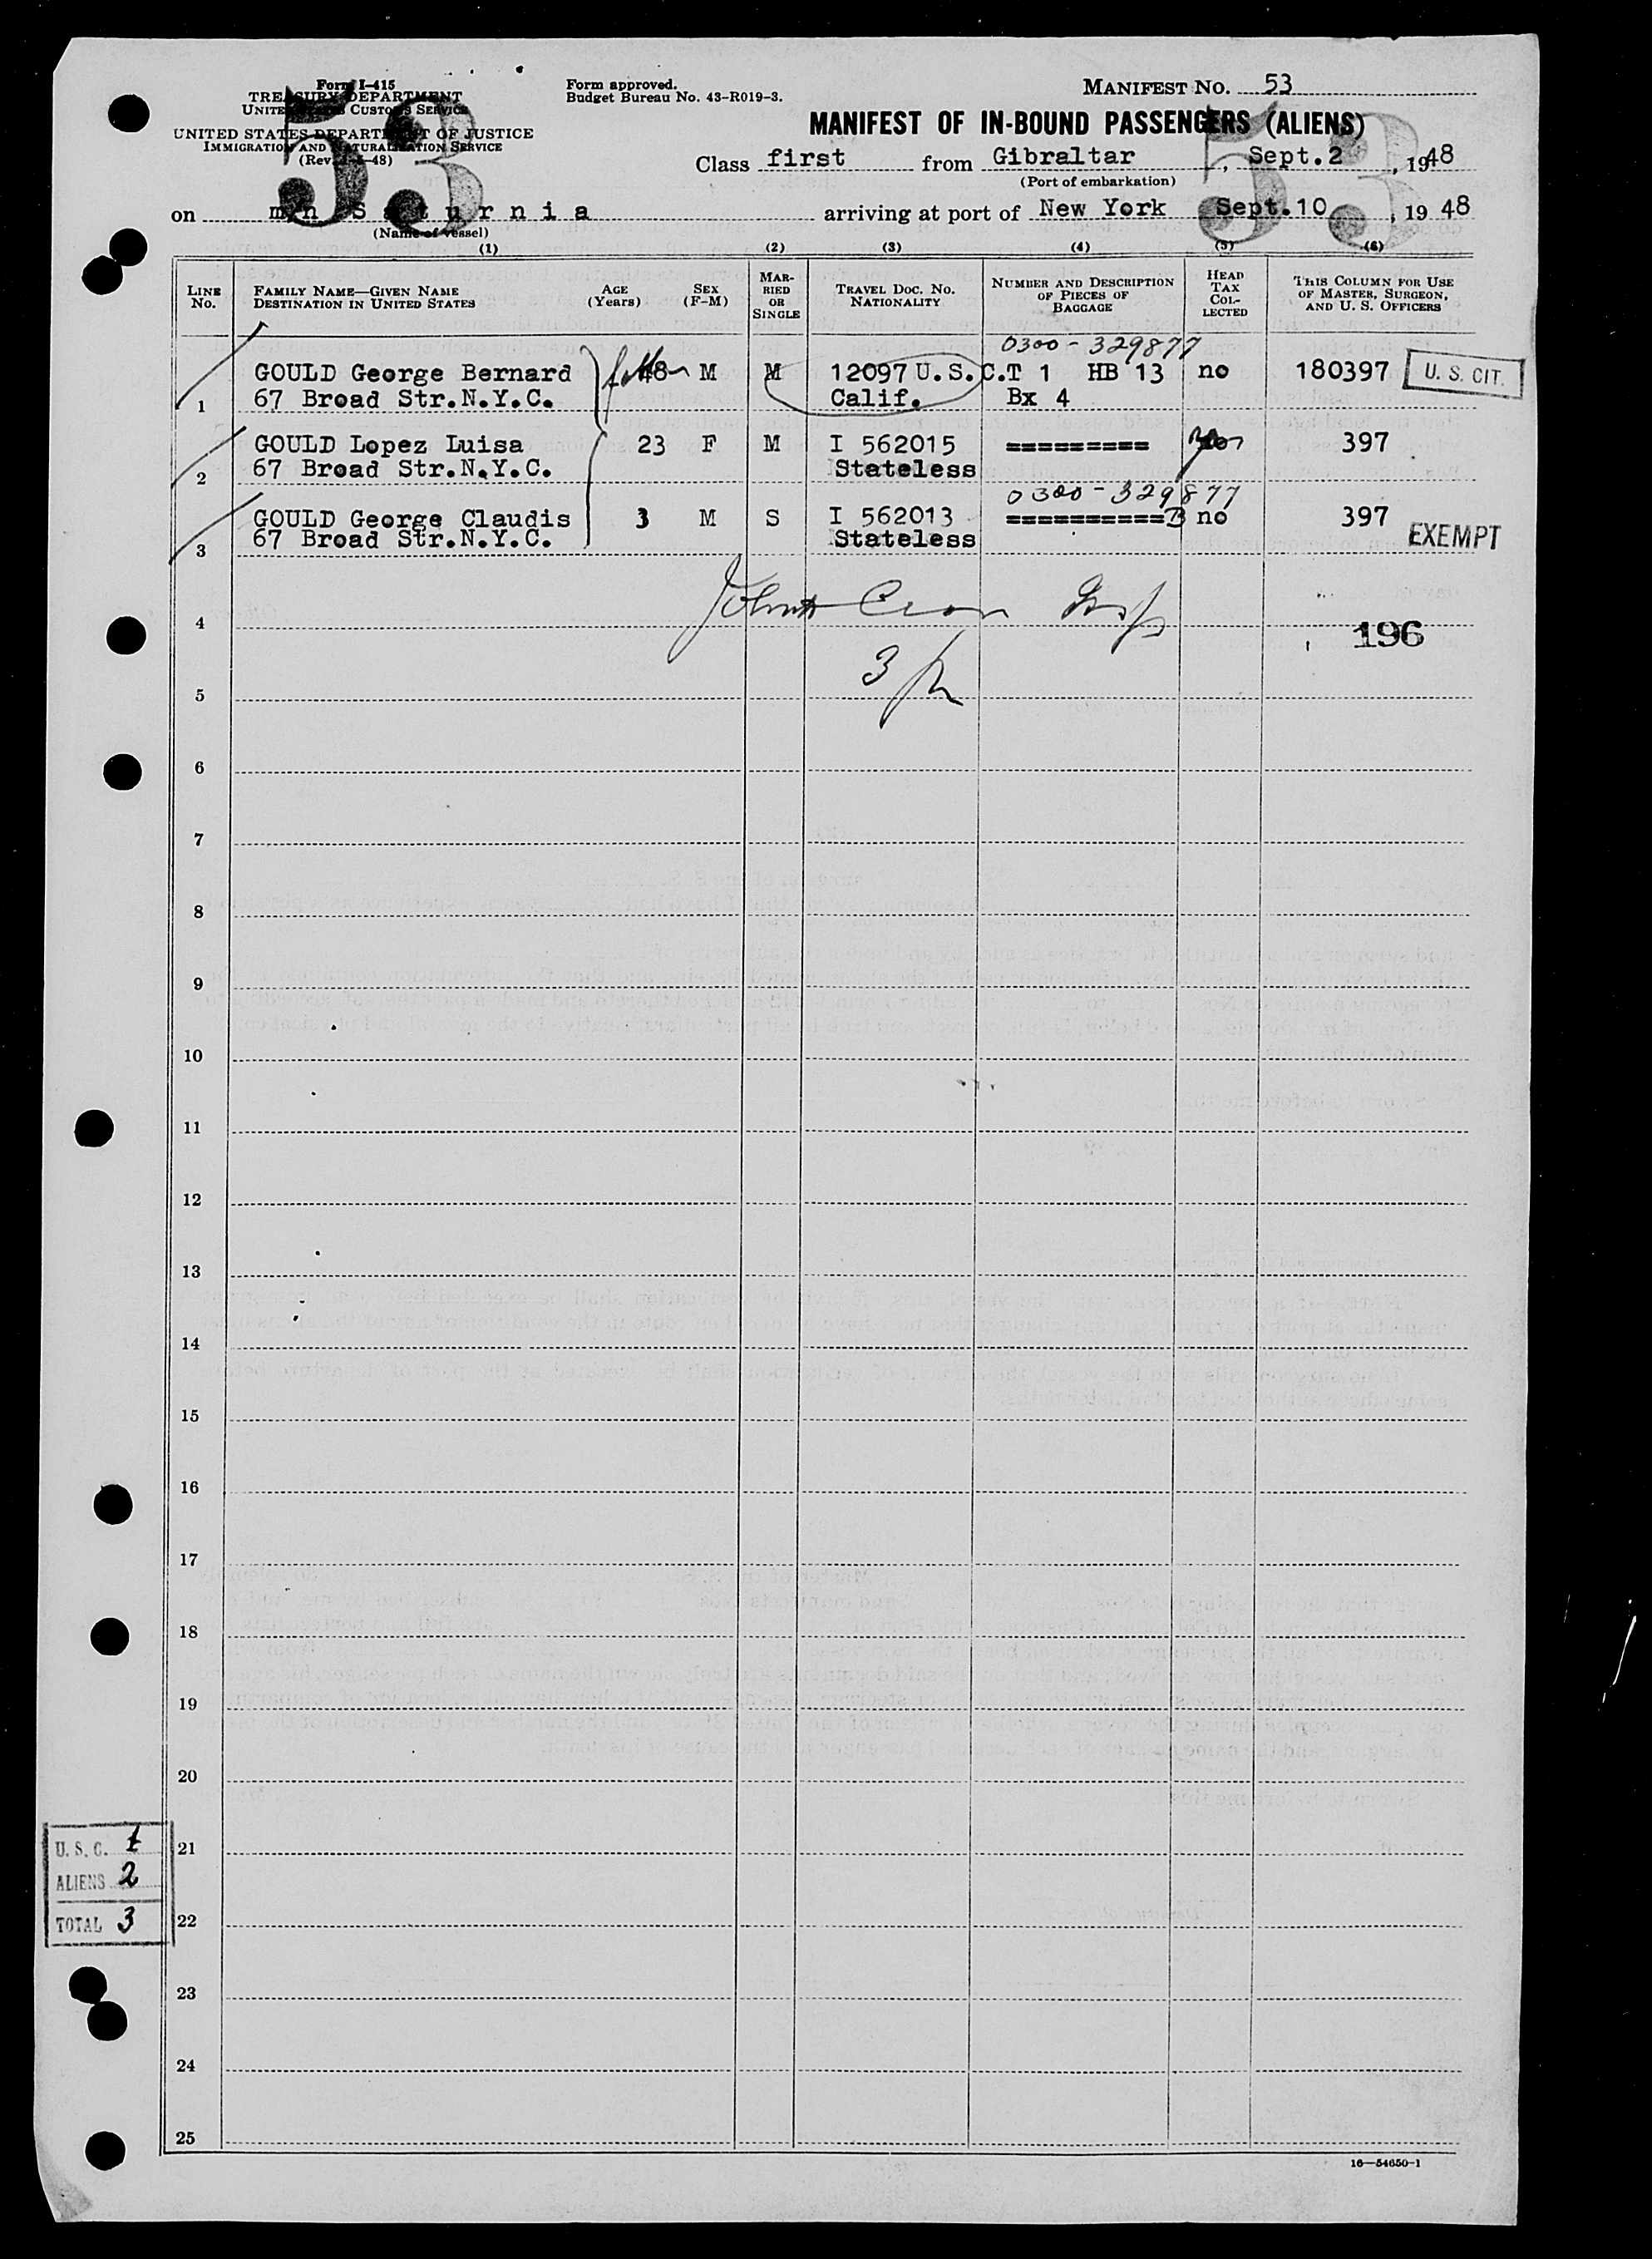 Form I-415
TREASURY DEPARTMENT
UNITED STATES CUSTOMS SERVICE
UNITED STATES DEPARTMENT OF JUSTICE
IMMIGRATION AND NATURALIZATION SERVICE
(Rev. -48)
53
Form approved.
Budget Bureau No. 43-R019-3.
MANIFEST NO. 53
53
MANIFEST OF IN-BOUND PASSENGERS (ALIENS)
Class first from Gibraltar, Sept.2, 1948
(Port of embarkation)
on m/n Saturnia arriving at port of New York Sept.10, 1948
(Name of vessel)
(1) (2) (3) (4) (5) (6)
LINE No. FAMILY NAME—GIVEN NAME DESTINATION IN UNITED STATES AGE (Years) SEX (F-M) MARRIED OR SINGLE TRAVEL DOC. NO. NATIONALITY NUMBER AND DESCRIPTION OF PIECES OF BAGGAGE HEAD TAX COLLECTED THIS COLUMN FOR USE OF MASTER, SURGEON, AND U. S. OFFICERS
0300-329877
1 GOULD George Bernard father 48 M M 12097 U.S.C. T 1 HB 13 no 180397 U. S. CIT.
67 Broad Str.N.Y.C. Calif. Bx 4
2 GOULD Lopez Luisa 23 F M I 562015 ========= 397
67 Broad Str.N.Y.C. Stateless
0300-329877
3 GOULD George Claudis 3 M S I 562013 ========== B no 397 EXEMPT
67 Broad Str.N.Y.C. Stateless
4
196
5
3
6
7
8
9
10
11
12
13
14
15
16
17
18
19
20
21
22
23
24
25
U. S. C. 1
ALIENS 2
TOTAL 3
16—54650-1